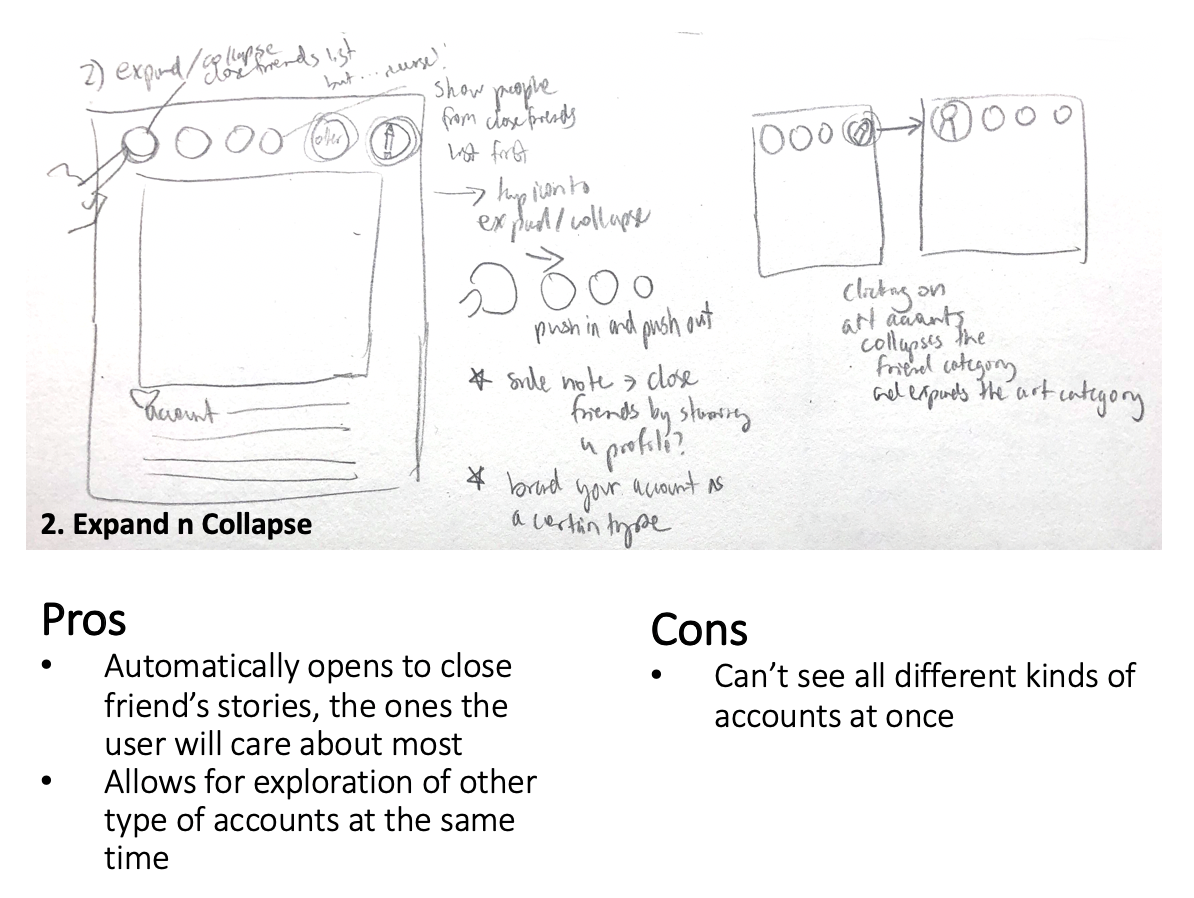 2) expand/collapse
close friends list
but ...
show people
from close friends
list first
other
→ tap icon to
expand/collapse
push in and push out
* side note → close
friends by starring
a profile?
* brand your account as
a certain type
account
clicking on
art accounts
collapses the
friend category
and expands the art category
2. Expand n Collapse
Pros
• Automatically opens to close
friend’s stories, the ones the
user will care about most
• Allows for exploration of other
type of accounts at the same
time
Cons
• Can’t see all different kinds of
accounts at once